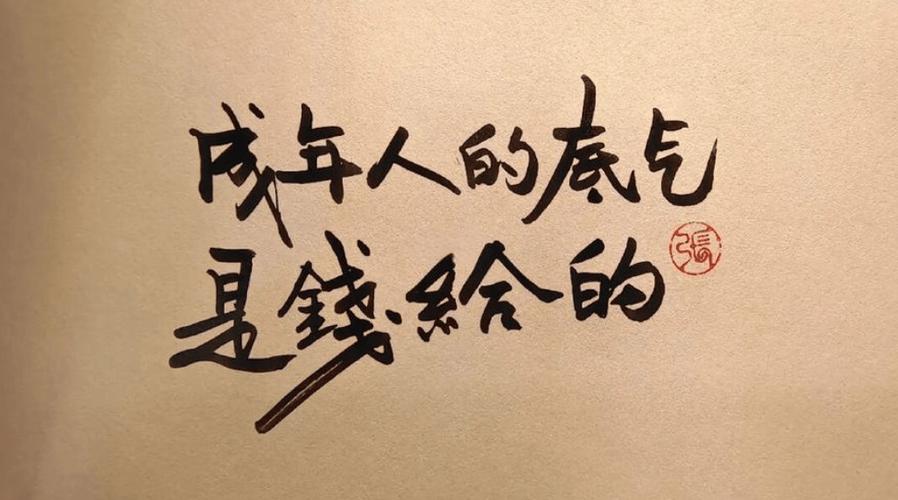 成年人的底气
是錢給的
張